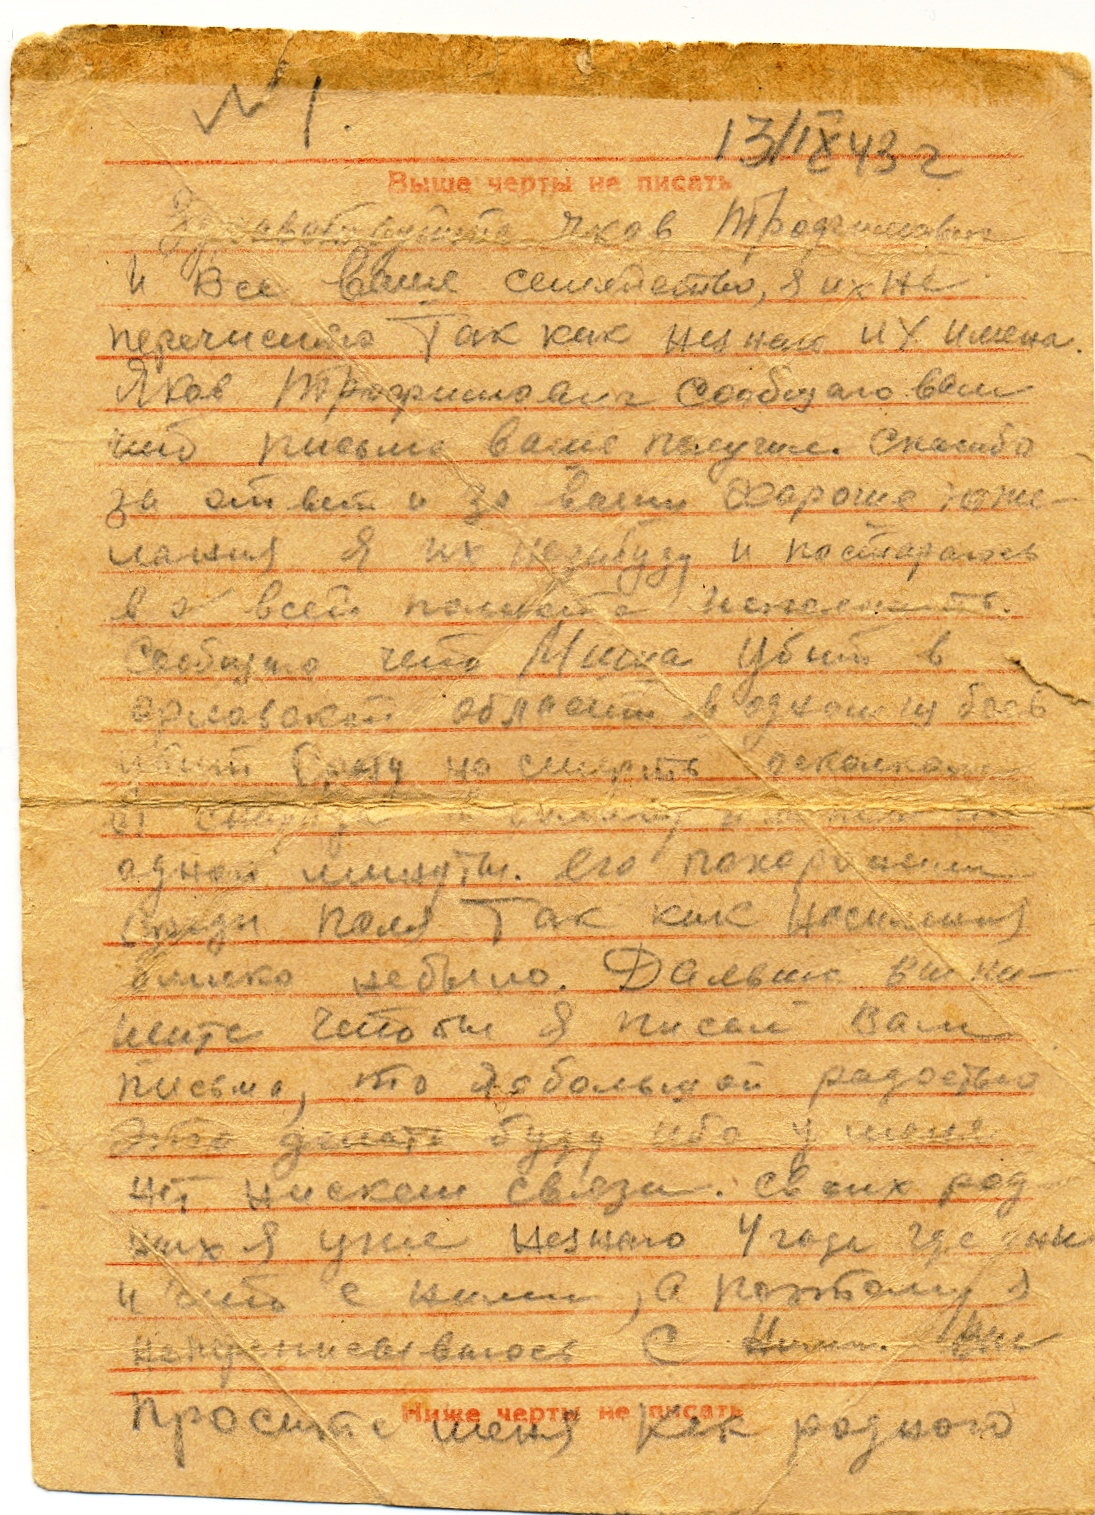 № 1.
13/IX 43 г
Выше черты не писать
Здравствуйте Яков Трофимович
и Все ваше семейство, я их не
перечисляю Так как незнаю их имена.
Яков Трофимович сообщаю вам
что письмо ваше получил. Спасибо
за ответ и за ваши хароше поже-
лания я их незабуду и постараюсь
во всей полноте исполнить.
Сообщаю что Миша убит в
орловской области в одном из боев
убит сразу на смерть осколком
от снаряда и
одной минуты. его похоронили
среди поля Так как Насиления
близко небыло. Дальше вы пи-
шите чтобы я писал Вам
письма, то я с большой радостью
это делать буду ибо у меня
нет нискем связи. своих род
ных я уже незнаю 4 года где они
и что с ними, а поэтому я
непереписываюсь с Ними. Вы
Ниже черты не писать
Просите меня как родного